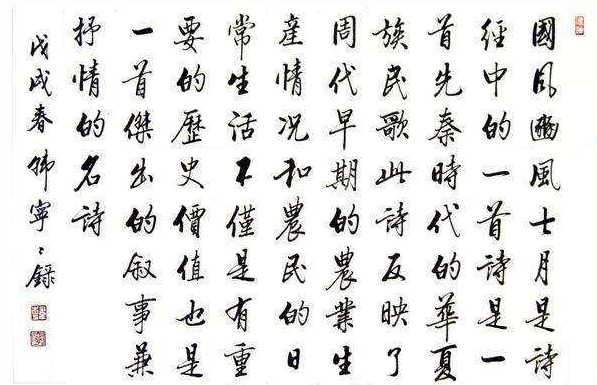 國风豳風七月是詩
經中的一首詩是一
首先秦時代的華夏
族民歌此詩反映了
周代早期的農業生
産情况和農民的日
常生活不僅是有重
要的歷史價值也是
一首傑出的叙事兼
抒情的名詩
戊戌春韩寧〻錄